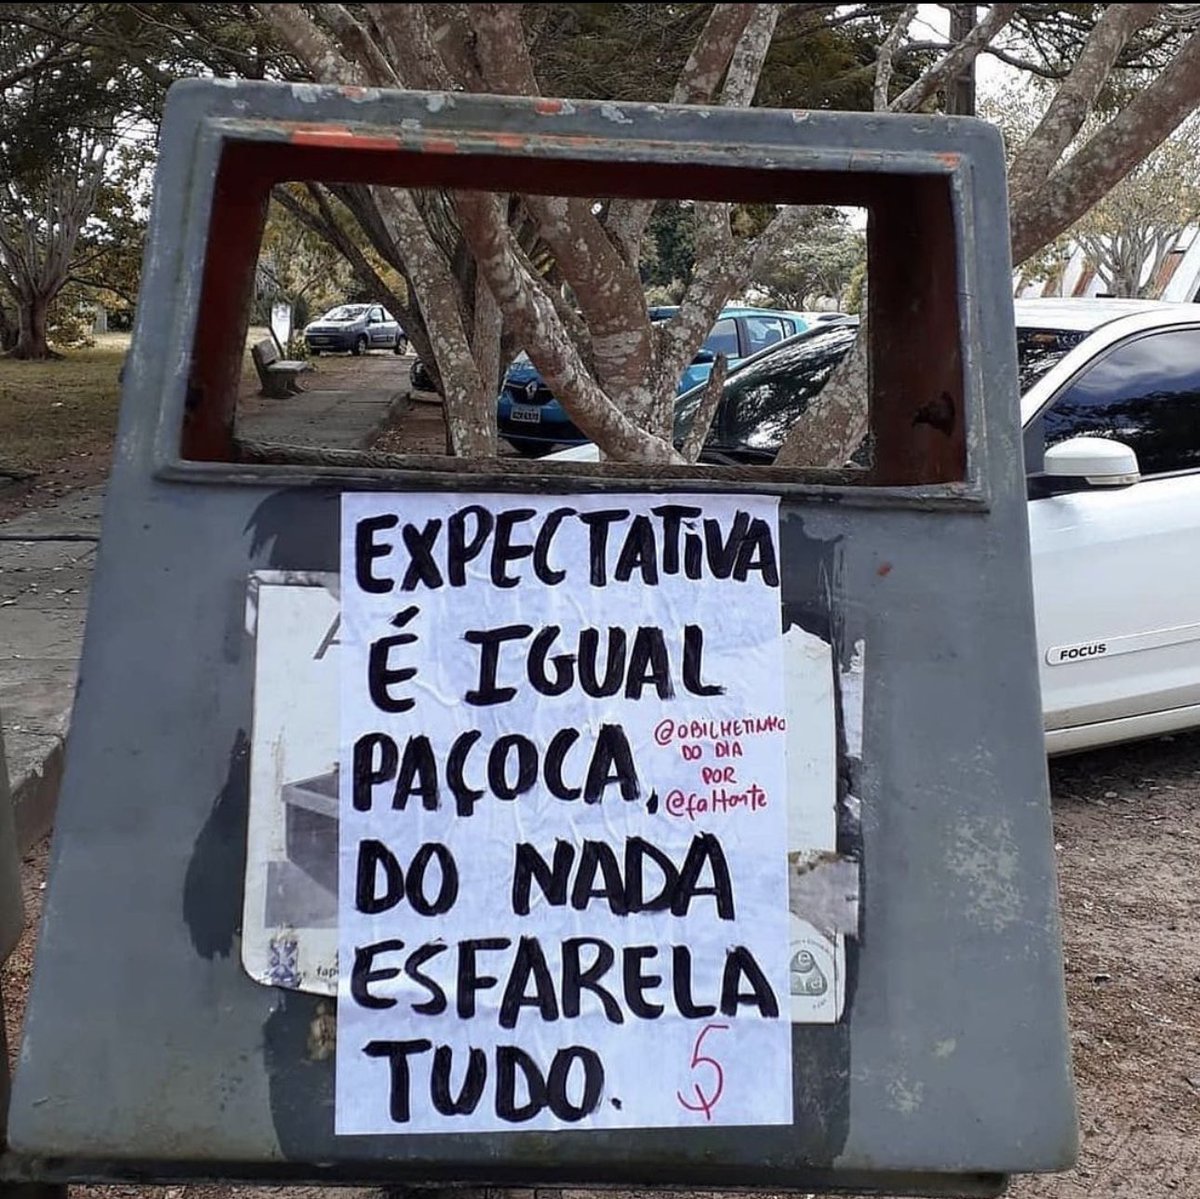 EXPECTATIVA
É IGUAL
PAÇOCA.
@OBILHETINHO
DO DIA
POR
@faHorte
DO NADA
ESFARELA
TUDO.
FOCUS